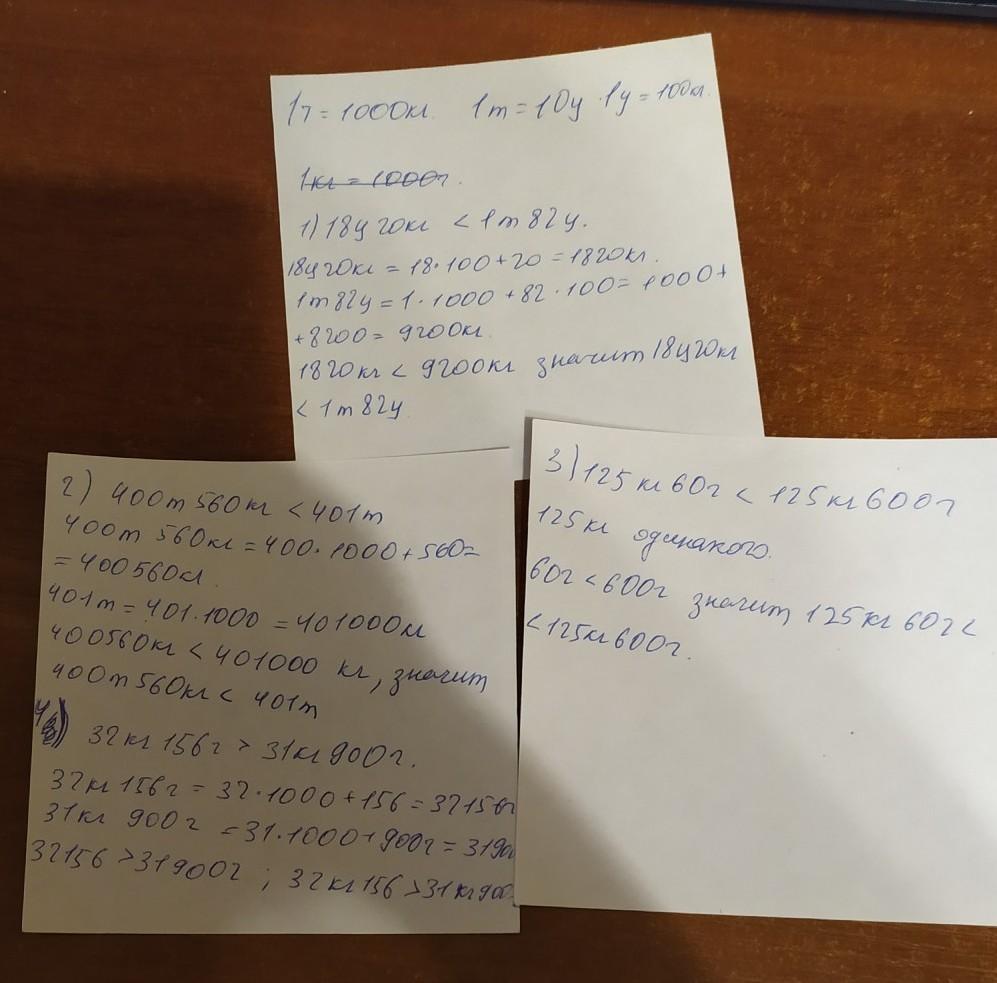 1т = 1000кг. 1т = 10ц 1ц = 100кг.
1кг = 1000г.
1) 18ц 20кг < 1т 82ц.
18ц20кг = 18·100+20 = 1820кг.
1т82ц = 1·1000 + 82·100 = 1000+
+8200 = 9200кг.
1820кг < 9200кг значит 18ц20кг
< 1т 82ц
2) 400т 560кг < 401т
400т 560кг = 400·1000+560=
= 400560кг.
401т = 401·1000 = 401000кг
400560кг < 401000 кг, значит
400т 560кг < 401т
4) 32кг 156г > 31кг 900г.
32кг 156г = 32·1000+156 = 32156г
31кг 900г = 31·1000+900г = 3190
32156 > 31900г ; 32кг156 > 31кг900
3) 125 кг 60г < 125кг 600г
125кг одинакого.
60г < 600г значит 125кг 60г <
< 125кг 600г.